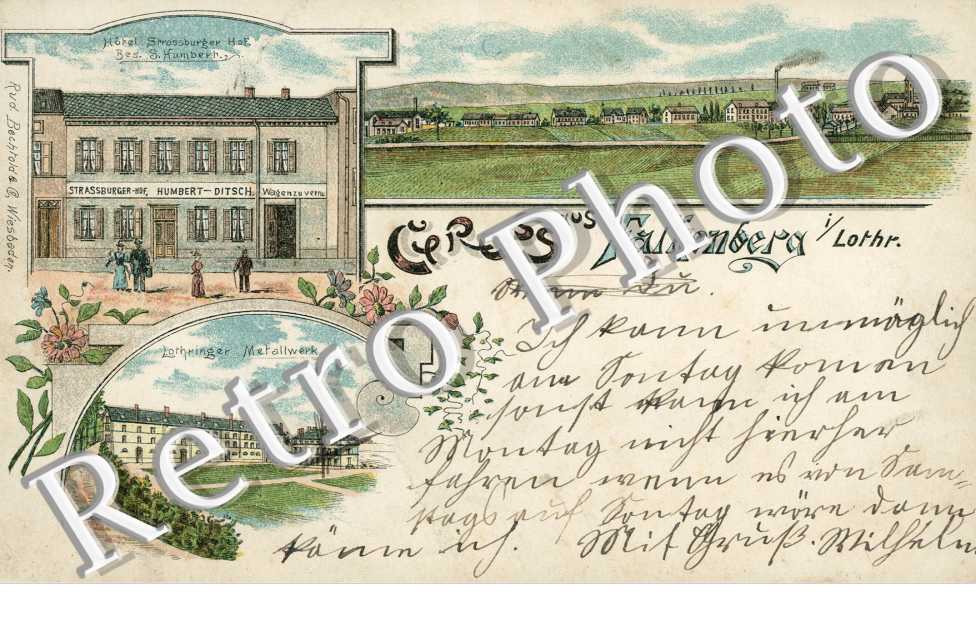 Hôtel Strassburger Hof
Bes. S. Humbert.
Rud. Bechtold & Co, Wiesbaden
STRASSBURGER-HOF, HUMBERT-DITSCH. Wagenzuverm.
Gruss aus Falkenberg i/Lothr.
Lothringer Metallwerk
Ich kann unmöglich
am Sontag komen
sonst kann ich am
Montag nicht hierher
fahren wenn es von Sam-
stags auf Sontag wäre dann
käme ich. Mit Gruß. Wilhelm.
Retro Photo